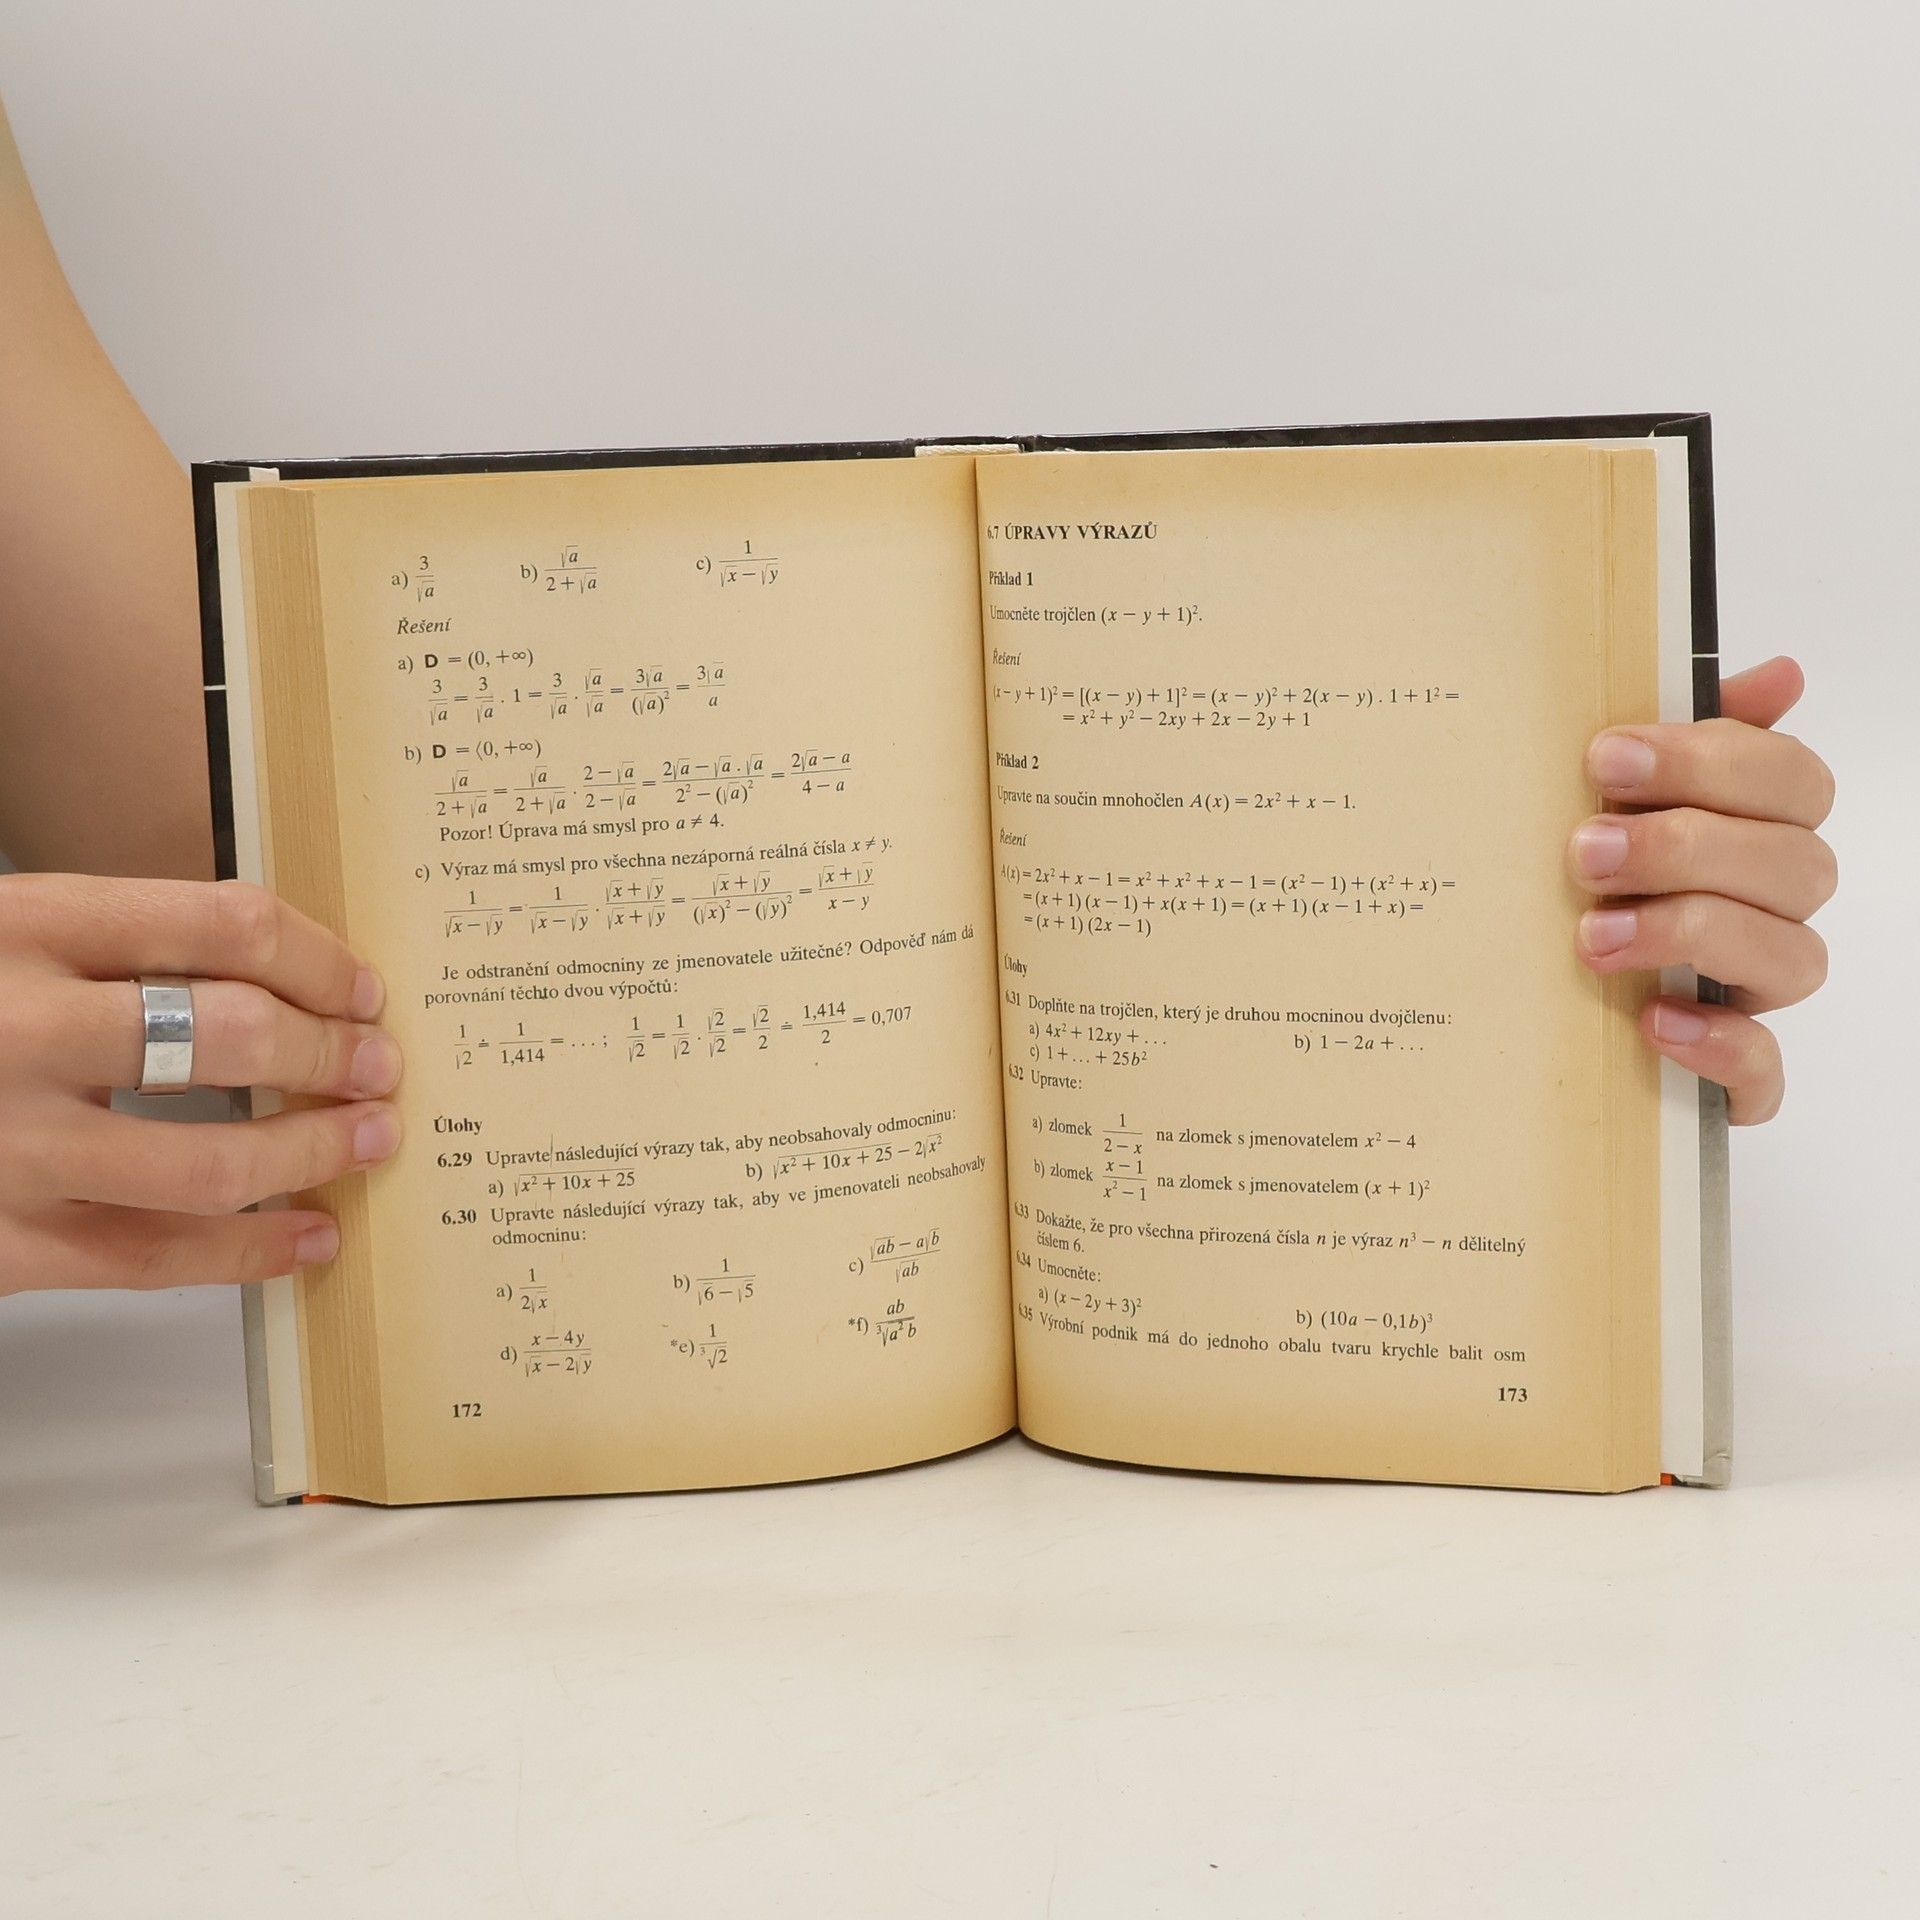 a) 3/√a b) √a/(2 + √a) c) 1/(√x − √y)
Řešení
a) D = (0, +∞)
3/√a = 3/√a . 1 = 3/√a . √a/√a = 3√a/(√a)² = 3√a/a
b) D = ⟨0, +∞)
√a/(2 + √a) = √a/(2 + √a) . (2 − √a)/(2 − √a) = (2√a − √a . √a)/(2² − (√a)²) = (2√a − a)/(4 − a)
Pozor! Úprava má smysl pro a ≠ 4.
c) Výraz má smysl pro všechna nezáporná reálná čísla x ≠ y.
1/(√x − √y) = 1/(√x − √y) . (√x + √y)/(√x + √y) = (√x + √y)/((√x)² − (√y)²) = (√x + √y)/(x − y)
Je odstranění odmocniny ze jmenovatele užitečné? Odpověď nám dá
porovnání těchto dvou výpočtů:
1/√2 ≐ 1/1,414 = . . . ; 1/√2 = 1/√2 . √2/√2 = √2/2 ≐ 1,414/2 = 0,707
Úlohy
6.29 Upravte následující výrazy tak, aby neobsahovaly odmocninu:
a) √(x² + 10x + 25) b) √(x² + 10x + 25) − 2√x²
6.30 Upravte následující výrazy tak, aby ve jmenovateli neobsahovaly
odmocninu:
a) 1/(2√x) b) 1/(√6 − √5) c) (√ab − a√b)/√ab
d) (x − 4y)/(√x − 2√y) *e) 1/³√2 *f) ab/³√(a² b)
172
6.7 ÚPRAVY VÝRAZŮ
Příklad 1
Umocněte trojčlen (x − y + 1)².
Řešení
(x − y + 1)² = [(x − y) + 1]² = (x − y)² + 2(x − y) . 1 + 1² =
= x² + y² − 2xy + 2x − 2y + 1
Příklad 2
Upravte na součin mnohočlen A(x) = 2x² + x − 1.
Řešení
A(x) = 2x² + x − 1 = x² + x² + x − 1 = (x² − 1) + (x² + x) =
= (x + 1) (x − 1) + x(x + 1) = (x + 1) (x − 1 + x) =
= (x + 1) (2x − 1)
Úlohy
6.31 Doplňte na trojčlen, který je druhou mocninou dvojčlenu:
a) 4x² + 12xy + . . . b) 1 − 2a + . . .
c) 1 + . . . + 25b²
6.32 Upravte:
a) zlomek 1/(2 − x) na zlomek s jmenovatelem x² − 4
b) zlomek (x − 1)/(x² − 1) na zlomek s jmenovatelem (x + 1)²
6.33 Dokažte, že pro všechna přirozená čísla n je výraz n³ − n dělitelný
číslem 6.
6.34 Umocněte:
a) (x − 2y + 3)² b) (10a − 0,1b)³
6.35 Výrobní podnik má do jednoho obalu tvaru krychle balit osm
173